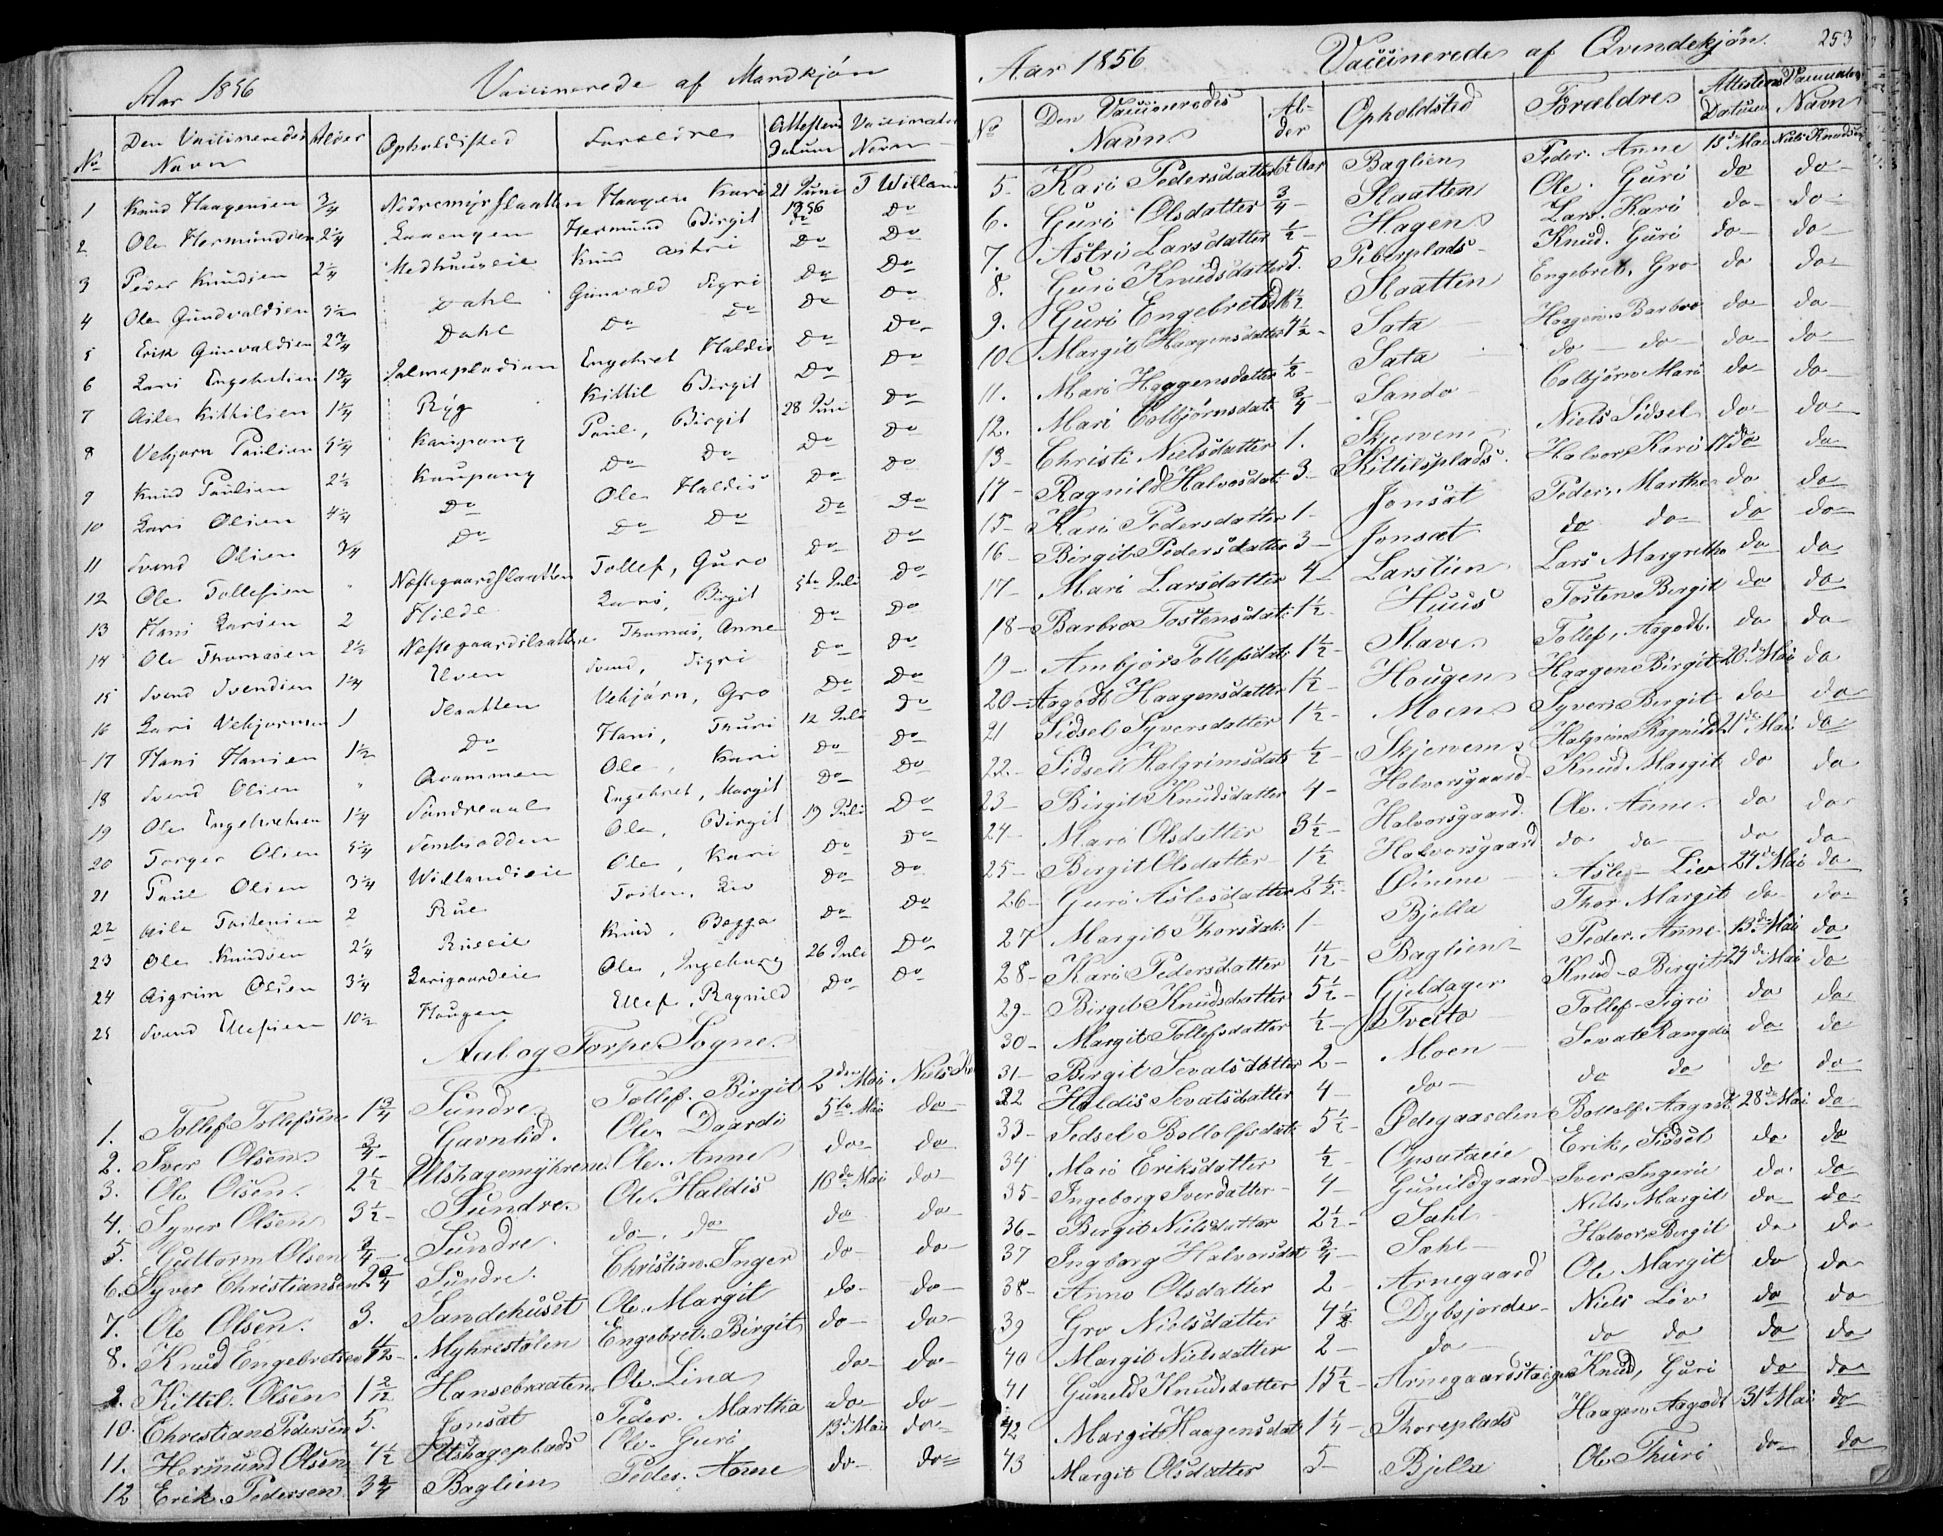 Aar 1856 Vaccinerede af Mandkjøn
No Den Vaccineredes Navn Alder Opholdssted Forældre Attestens Datum Vaccinateurs Navn
1 Knud Haagensen 3/4 Nedremyrslaatten Haagen Kari 21 Juni 1856 T Willand
2 Ole Hermundsen 2 1/4 Hermund Birgit Do Do
3 Peder Knudsen 2 1/4 Medhuuseie Knud Astri Do Do
4 Ole Gundvaldsen 9 1/2 Dahl Gunvald Sigri Do Do
5 Erik Gunvaldsen 2 3/4 Dahl Do Do Do Do
6 Lars Engebretsen 1 3/4 Engebret Haldis Do Do
7 Asle Kittilsen 1 1/4 Ryg Kittil Birgit Do Do
8 Vebjørn Paulsen 5 1/4 Kaupang Paul, Birgit 28 Juni Do
9 Knud Paulsen 2 1/2 Kaupang Do Do Do Do
10 Lars Olsen 4 1/4 Do Ole Haldis Do Do
11 Svend Olsen 3/4 Do Do Do Do Do
12 Ole Tollefsen " Næssegaardslaatten Tollef, Guro Do Do
13 Hans Larsen 2 Hilde Lars, Birgit 5te Juli Do
14 Ole Thomasen 2 1/2 Næssegaardslaatten Thomas, Anne Do Do
15 Svend Svendsen 1 1/4 Elven Svend, Sigri Do Do
16 Lars Vebjørnsen 1 Slaatten Vebjørn, Gro Do Do
17 Hans Hansen 1 1/2 Do Hans, Thuri 12 Juli Do
18 Svend Olsen " Qvammen Ole, Kari Do Do
19 Ole Engebretsen 1 1/4 Sundreaal Engebret, Margit Do Do
20 Torger Olsen 5 1/4 Sembrodden Ole, Birgit 19 Juli Do
21 Paul Olsen 3 1/4 Willandseie Ole, Kari Do Do
22 Asle Tostensen 2 Rue Tosten, Liv Do Do
23 Ole Knudsen 2 1/4 Rueseie Knud, Do Do
24 Aigrim Olsen 3 1/4 Larsgaardeie Ole, Ingeborg 26 Juli Do
25 Svend Ellefsen 10 1/2 Haugen Ellef, Ragnild Do Do
Aal og Torpe Sogne.
1. Tollef Tollefsen 1 3/4 Sundre. Tollef. Birgit 2den Mai Niels
2. Iver Olsen 3/4 Gavnlid. Ole. Daardi 5te Mai do
3. Ole Olsen. 2 1/2 Ulshagemyhrene Ole. Anne do do
4. Syver Olsen 3 1/2 Sundre. Ole. Haldis 10de Mai do
5. Guttorm Olsen 3/4 Sundre. do. do do do
6. Syver Christiansen 2 3/4 Sundre. Christian. Inger do do
7. Ole Olsen. 3. Sandehuset Ole. Margit do do
8. Knud Engebretsen Myhrestølen Engebret. Birgit do do
9. Kittil. Olsen 1 2/12 Hansebraaten Ole. Lina do do
10. Christian Pedersen 5. Jonsat Peder. Martha do do
11. Hermund Olsen 4 1/2 Ulshageplads Ole. Guri 13de Mai do
12 Erik Pedersen 3 3/4 Baglien Peder. Anne do do
Aar 1856 Vaccinerede af Qvindekjøn. 253
No Den Vaccineredes Navn Alder Opholdsted Forældre Attestens Datum Vaccinateur Navn
5. Kari Pedersdatter Aar Baglien Peder. Anne 13de Mai Niels Knudsen
6. Guri Olsdatter 3/4 Slaatten Ole. Guri do do
7. Astri Larsdatter 1/2 Hagen Lars. Kari do do
8. Guri Knudsdatter 5 Piberplads Knud. Guri do do
9. Guri Engebretsd Slaatten Engebret. Gro do do
10. Margit Haagensdatter 4 1/2 Sata Haagen. Barbro do do
11. Mari Haagensdatter 1/2 Sata do do do do
12. Mari Colbjørnsdat 3/4 Sando Colbjørn Mari do do
13 Christi Nielsdatter 1. Skjervem Niels Sidsel do do
14 Ragnild Halvorsdat 3 Kittilsplads Halvor Kari 17de do
15 Kari Pedersdatter 1 Jonsat Peder. Marthe do do
16 Birgit Pedersdatter 3 Jonsat do do do do
17 Mari Larsdatter 4 Larstien Lars Margrethe do do
18 Barbro Tostensdat 1 1/2 Huus Tosten Birgit do do
19 Ambjør Tollefsdat 1 1/2 Stave Tollef, Aagodt. do do
20 Aagodt Haagensdatter 1 1/2 Haugen Haagen Birgit 20de Mai do
21 Sidsel Syversdatter 1 1/2 Moen Syver Birgit do do
22 Sidsel Halgrimsdat 1/2 Skjervem Halgrim Ragnild 21de Mai do
23 Birgit Knudsdatter 4 Halvorsgaard Knud Margit do do
24 Mari Olsdatter 3 1/2 Halvorsgaard Ole. Anne. do do
25 Birgit Olsdatter 1 1/2 Halvorsgaard do do do do
26 Guri Aslesdatter 2 1/2 Øinene Asle Liv 24de Mai do
27 Margit Thorsdat 1 Bjella Thor Margit do do
28 Kari Pedersdatter Baglien Peder. Anne 13de Mai do
29 Birgit Knudsdatter 5 1/2 Gjeldager Knud Birgit 24de Mai do
30 Margit Tollefsdatter 1/2 Tveito Tollef Sigri do do
31 Birgit Sevatsdatter 2 Moen Sevat Rangdi do do
32 Haldis Sevatsdatter 4 do do do do do
33 Sedsel Bottolfsdat 5 1/2 Ødegaarden Bottolf Aagodt 28de Mai do
34 Mari Eriksdatter 1/2 Opsataeie Erik, Sidsel do do
35 Ingeborg Iversdatter 4 Gunildgaard Iver Ingerie do do
36 Birgit Nielsdatter 2 1/2 Sahl Niels, Margit do do
37 Ingborg Halvorsdat 3/4 Sahl Halvor, Birgit do do
38 Anne Olsdatter 2 Arnegaard Ole Margit do do
39 Gro Nielsdatter 4 1/2 Dybsjordet Niels Liv do do
40 Margit Nielsdatter 2 do do do do do
41 Guneld Knudsdatter 15 1/2 Arnegaardsteigen Knud, Guri do do
42 Margit Haagensdat 1 1/4 Thoreplads Haagen Aagodt 31te Mai do
43 Margit Olsdatter 5 Bjella Ole Thuri do do